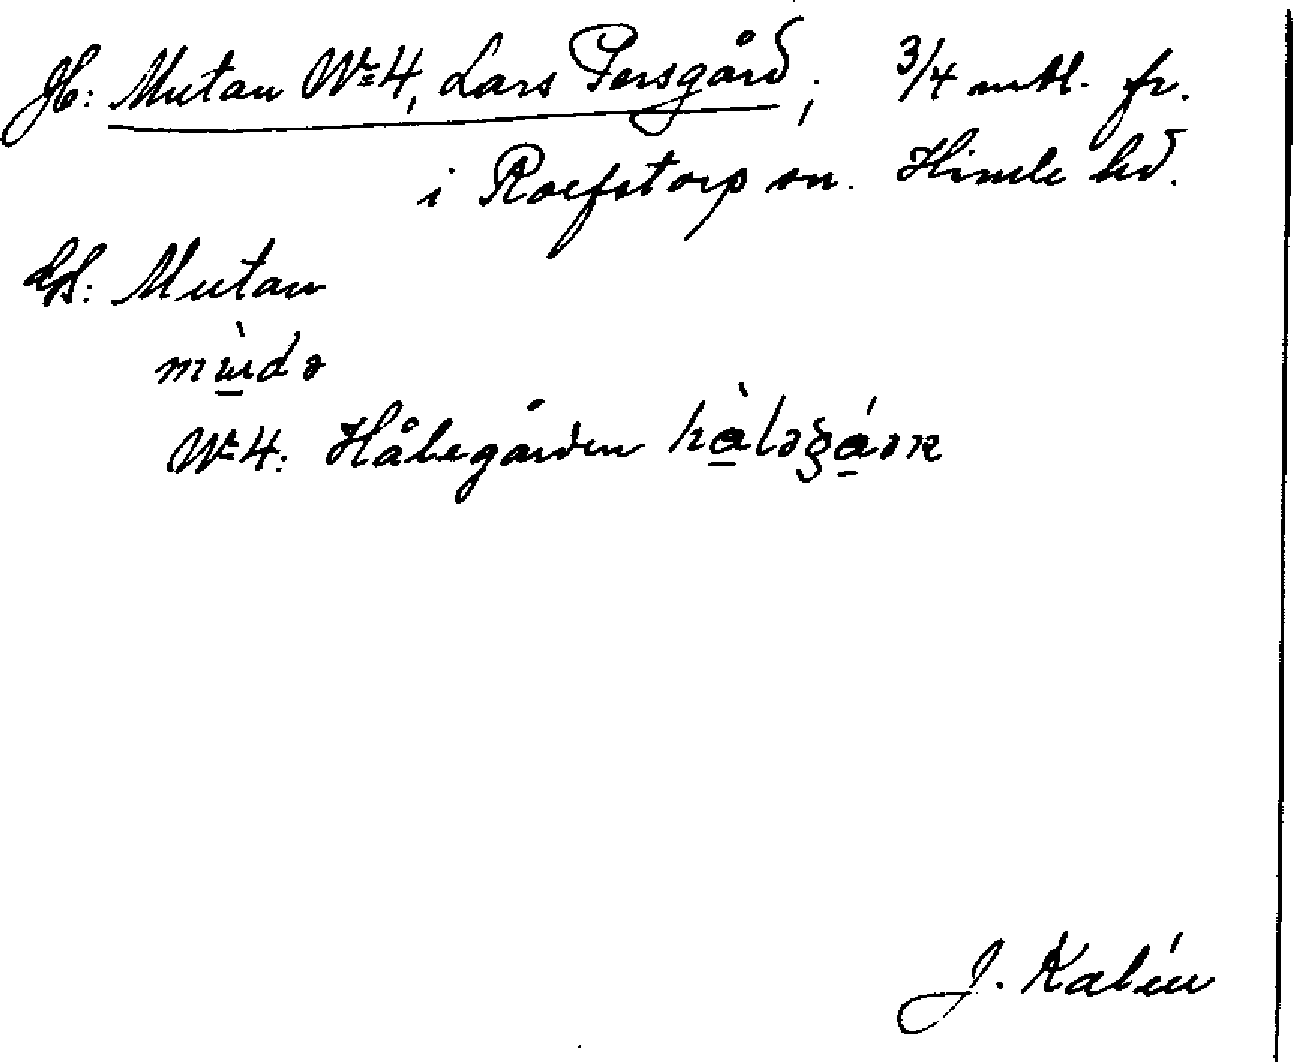 Jb: Mutan No 4, Lars Persgård; 3/4 mtl. fr.
i Roefstorp sn. Himle hd.
Ek: Mutan
mɯ̀də
No 4: Hålegården hàləgáən
J. Kalén